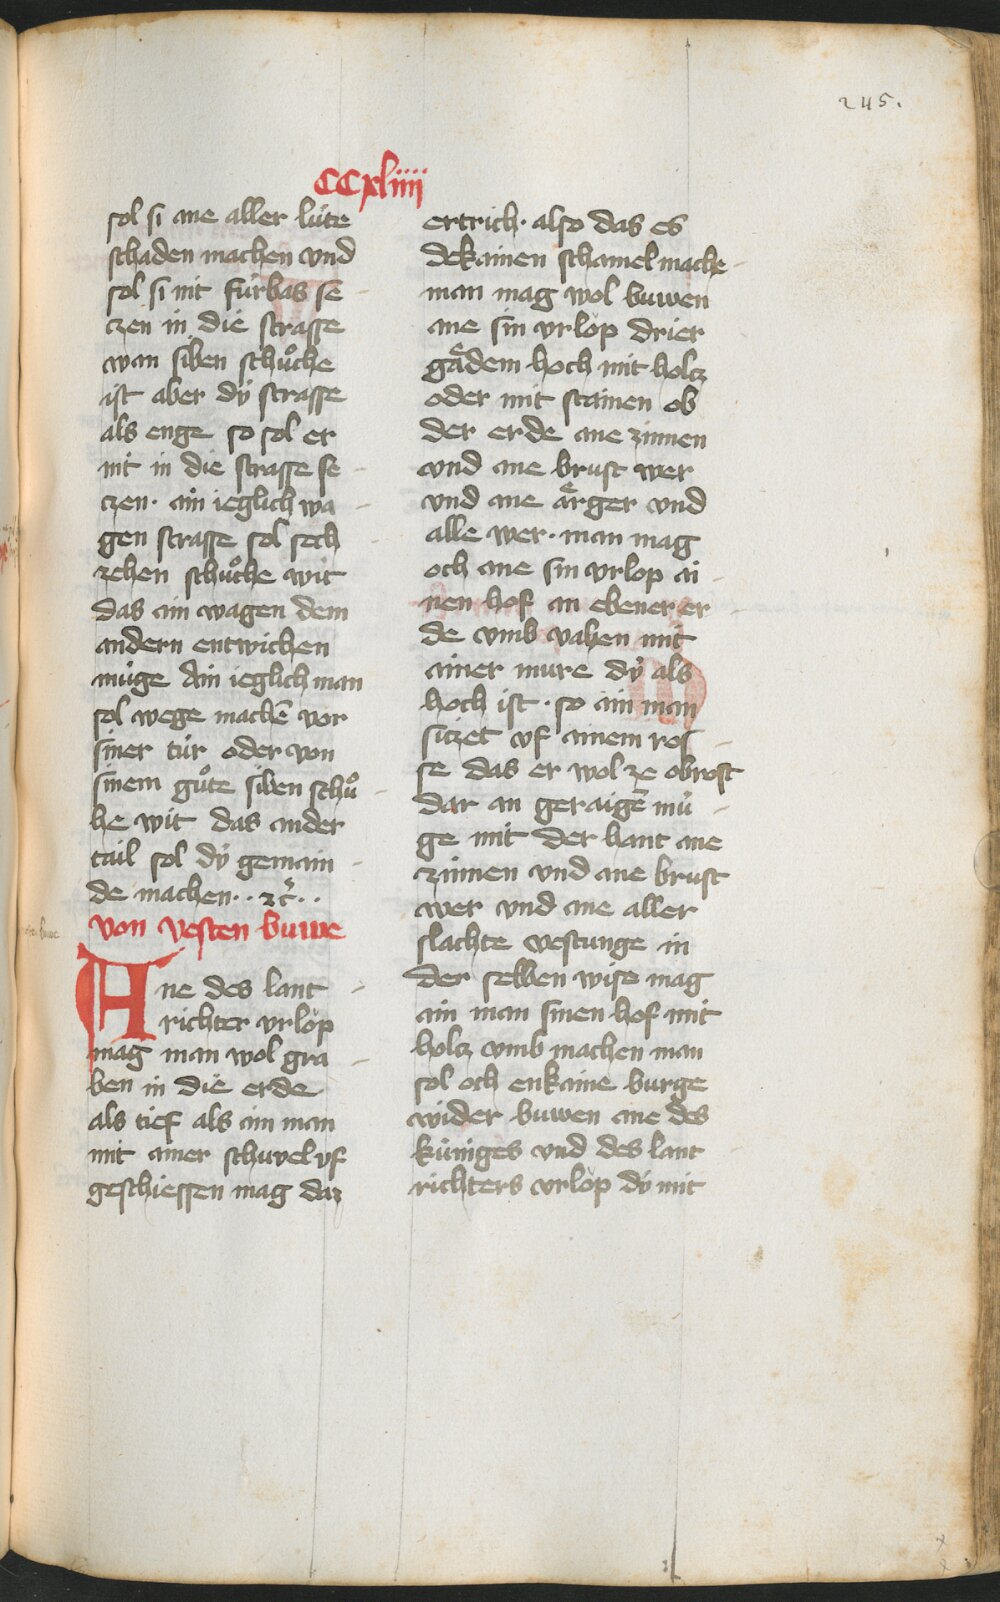 245.
CCxliiii
sol si ane aller lüte
schaden machen vnd
sol si nit fürbas se
czen in die strasse
wan siben schůche
ist aber dÿ strasse
als enge so sol er
nit in die strasse se
czen· ain ieglich wa
gen strasse sol sech
zehen schůche wit
das ain wagen dem
andern entwichen
müge Ain ieglich man
sol wege machē vor
siner tür oder von
sinem gůte siben schů
he wit das ander
tail sol dÿ gemain
de machen·· ꝛc̃··
von vesten buwe
Ane des lant
richter vrlop
mag man wol gra
ben in die erde
als tief als ain man
mit ainer schuvel vf
geschiessen mag daz
ertrich· also das es
dekainen schamel mache
man mag wol buwen
ane sin vrlop drier
gaͤdem hoch mit holcz
oder mit stainen ob
der erde ane zinnen
vnd ane brust wer
vnd ane aͤrger vnd
alle wer· man mag
och ane sin vrlop ai
nen hof an ebener er
de vmb vahen mit
ainer mure dÿ als
hoch ist· so ain man
siczet vf ainem ros
se das er wol ze obrost
dar an geraigē mü
ge mit der hant ane
zinnen vnd ane brust
wer vnd ane aller
slachte vestunge in
der selben wise mag
ain man sinen hof mit
holcz vmb machen man
sol och enkaine burge
wider buwen ane des
küniges vnd des lant
richters vrlop dÿ mit